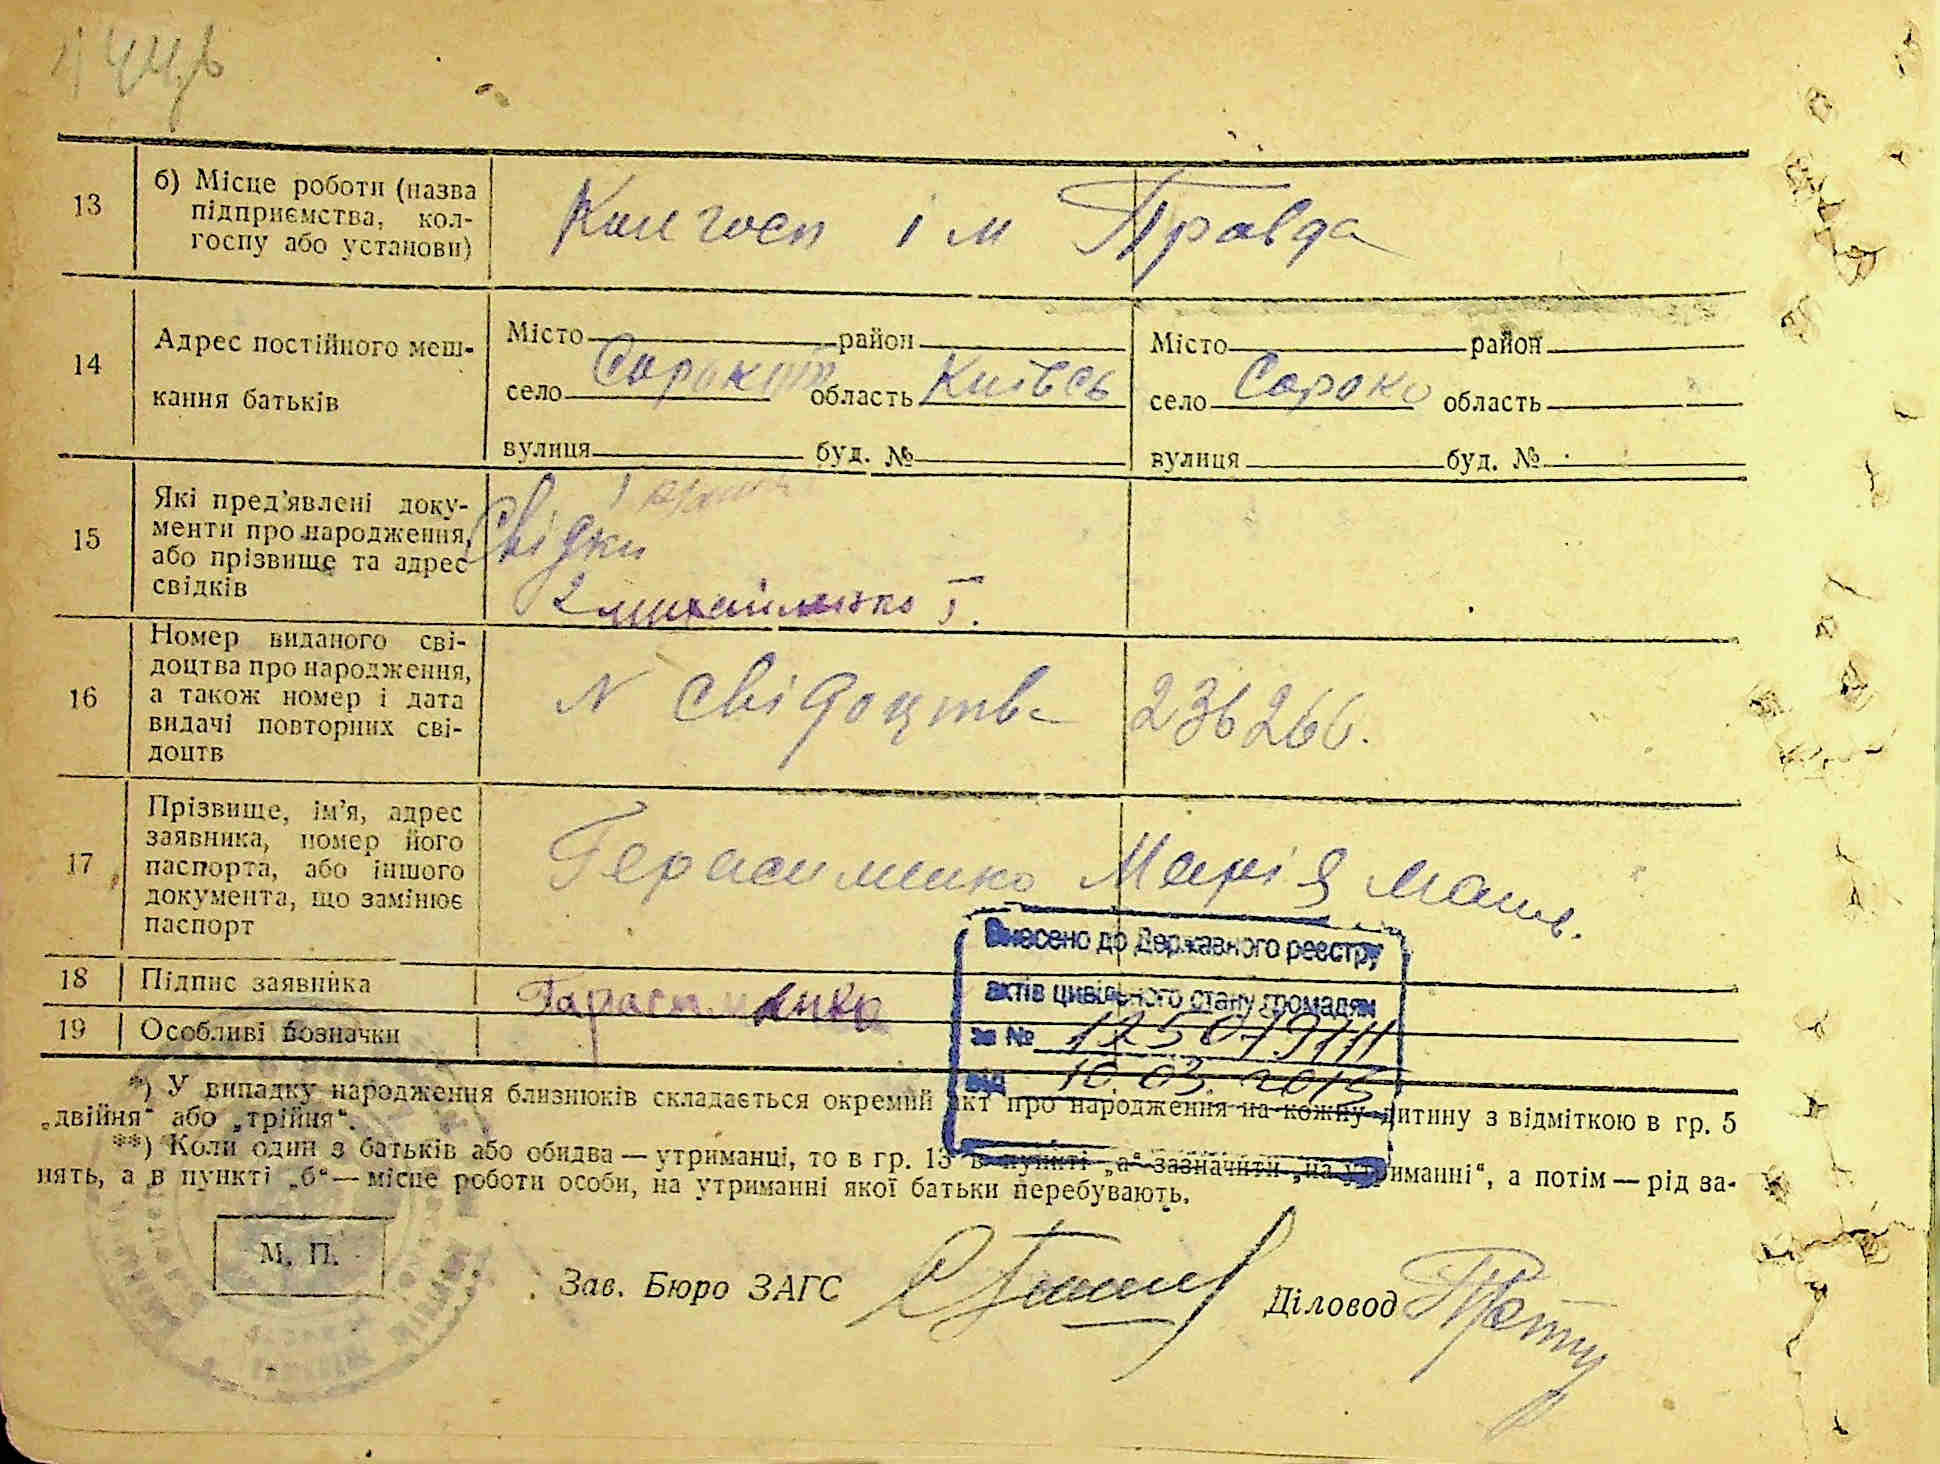 13
б) Місце роботи (назва
підприємства, кол-
госпу або установи)
Колгосп ім Правда
14
Адрес постійного меш-
кання батьків
Місто район
село область Київсь
вулиця буд. №
Місто район
село Сороко область
вулиця буд. №
15
Які пред'явлені доку-
менти про народження,
або прізвище та адрес
свідків
Свідки
2 михайленко Г.
16
Номер виданого сві-
доцтва про народження,
а також номер і дата
видачі повторних сві-
доцтв
N свідоцтв 236266.
17
Прізвище, ім'я, адрес
заявника, номер його
паспорта, або іншого
документа, що замінює
паспорт
Герасименко Марія
18
Підпис заявника
Гарасименко
19
Особливі возначки
Внесено до Державного реєстру
актів цивільного стану громадян
за №
від 10.03.2015
*) У випадку народження близнюків складається окремий акт про народження на кожну дитину з відміткою в гр. 5
„двійня“ або „трійня“.
**) Коли один з батьків або обидва — утриманці, то в гр. 13 в пункті „а“ зазначити „на утриманні“, а потім — рід за-
нять, а в пункті „б“ — місце роботи особи, на утриманні якої батьки перебувають.
М. П.
Зав. Бюро ЗАГС
Діловод